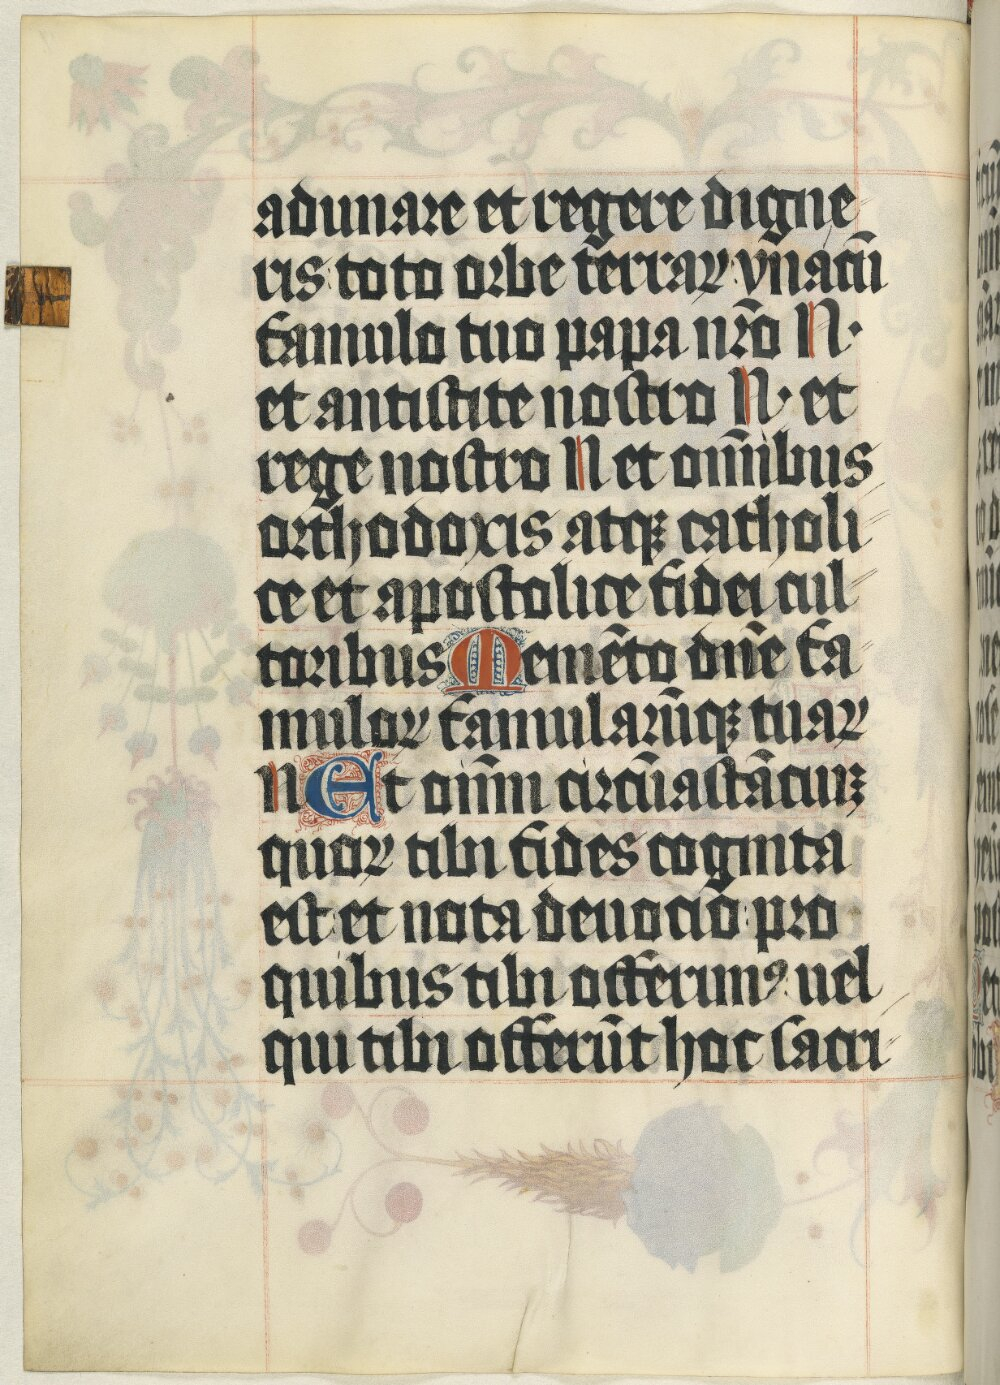 adunare et regere digne
ris toto orbe terraꝝ vnacū
famulo tuo papa nr̄o N·
et antistite nostro N· et
rege nostro N et om̄ibus
orthodoxis atqꝫ catholi
ce et apostolice fidei cul
toribus Memēto dn̄e fa
muloꝝ famularūqꝫ tuaꝝ
N Et om̄i circūastāciuꝫ
quoꝝ tibi fides cognita
est et nota deuocio pro
quibus tibi offerimꝰ uel
qui tibi offerūt hoc sacri